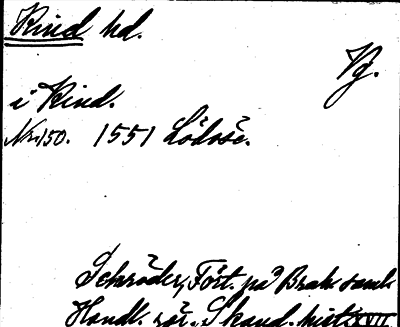 Kind hd.
Vg.
i Kind.
Nr. 150. 1551 Lödose.
Schröder, Fört. på Brahe saml.
Handl. rör. Skand. hist. XVII